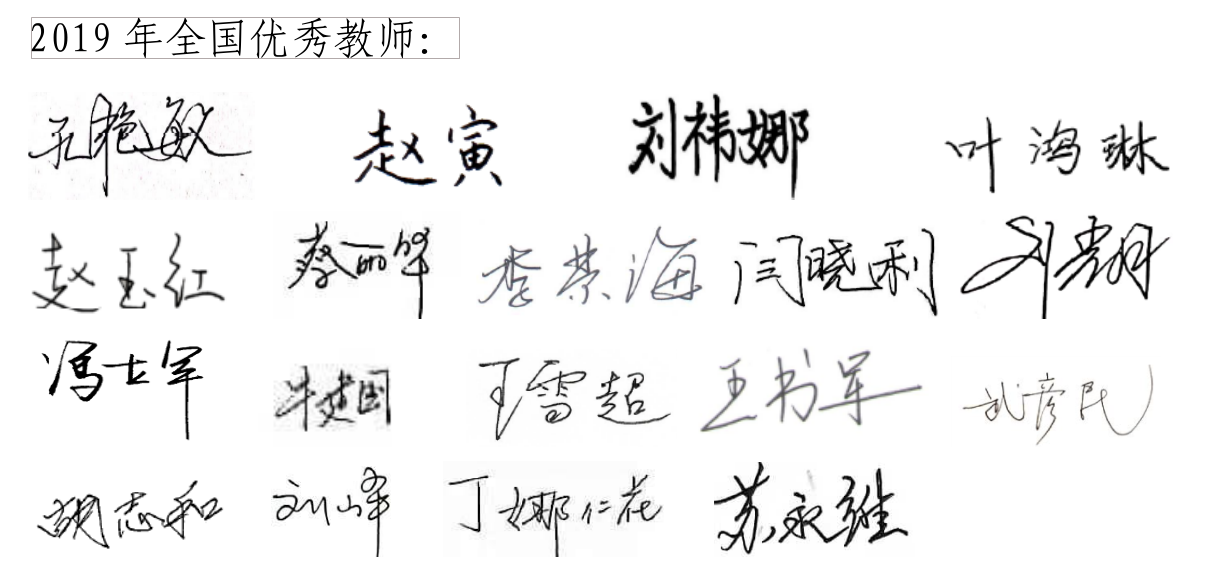 2019 年全国优秀教师：
孔艳敏 赵寅 刘祎娜 叶鸿琳
赵玉红 蔡丽华 李荣海 闫晓利 刘贵
冯士军 牛建国 王雪超 王书军 武彦民
胡志和 刘峰 丁娜仁花 苏永维